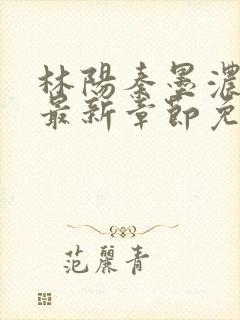 林陽秦墨濃
最新章節免
范麗青